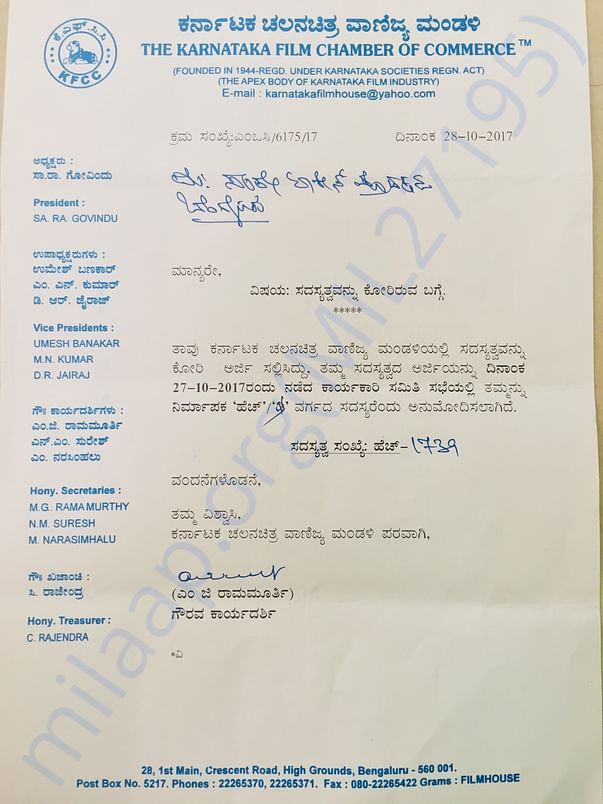 ಕರ್ನಾಟಕ ಚಲನಚಿತ್ರ ವಾಣಿಜ್ಯ ಮಂಡಳಿ
THE KARNATAKA FILM CHAMBER OF COMMERCE™
ಕೆ.ಎಫ್.ಸಿ.ಸಿ
KFCC
(FOUNDED IN 1944-REGD. UNDER KARNATAKA SOCIETIES REGN. ACT)
(THE APEX BODY OF KARNATAKA FILM INDUSTRY)
E-mail : karnatakafilmhouse@yahoo.com
ಕ್ರಮ ಸಂಖ್ಯೆ:ಎಂಒಸಿ/6175/17 ದಿನಾಂಕ 28-10-2017
ಅಧ್ಯಕ್ಷರು :
ಸಾ.ರಾ. ಗೋವಿಂದು
President :
SA. RA. GOVINDU
ಉಪಾಧ್ಯಕ್ಷರುಗಳು :
ಉಮೇಶ್ ಬಣಕಾರ್
ಎಂ. ಎನ್. ಕುಮಾರ್
ಡಿ. ಆರ್. ಜೈರಾಜ್
Vice Presidents :
UMESH BANAKAR
M.N. KUMAR
D.R. JAIRAJ
ಗೌ|| ಕಾರ್ಯದರ್ಶಿಗಳು :
ಎಂ.ಜಿ. ರಾಮಮೂರ್ತಿ
ಎನ್.ಎಂ. ಸುರೇಶ್
ಎಂ. ನರಸಿಂಹಲು
Hony. Secretaries :
M.G. RAMA MURTHY
N.M. SURESH
M. NARASIMHALU
ಗೌ|| ಖಜಾಂಚಿ :
ಸಿ. ರಾಜೇಂದ್ರ
Hony. Treasurer :
C. RAJENDRA
ಬೆಂಗಳೂರು
ಮಾನ್ಯರೇ,
ವಿಷಯ: ಸದಸ್ಯತ್ವವನ್ನು ಕೋರಿರುವ ಬಗ್ಗೆ.
*****
ತಾವು ಕರ್ನಾಟಕ ಚಲನಚಿತ್ರ ವಾಣಿಜ್ಯ ಮಂಡಳಿಯಲ್ಲಿ ಸದಸ್ಯತ್ವವನ್ನು
ಕೋರಿ ಅರ್ಜಿ ಸಲ್ಲಿಸಿದ್ದು, ತಮ್ಮ ಸದಸ್ಯತ್ವದ ಅರ್ಜಿಯನ್ನು ದಿನಾಂಕ
27-10-2017ರಂದು ನಡೆದ ಕಾರ್ಯಕಾರಿ ಸಮಿತಿ ಸಭೆಯಲ್ಲಿ ತಮ್ಮನ್ನು
ನಿರ್ಮಾಪಕ 'ಹೆಚ್'/ ವರ್ಗದ ಸದಸ್ಯರೆಂದು ಅನುಮೋದಿಸಲಾಗಿದೆ.
ಸದಸ್ಯತ್ವ ಸಂಖ್ಯೆ: ಹೆಚ್-1739
ವಂದನೆಗಳೊಡನೆ,
ತಮ್ಮ ವಿಶ್ವಾಸಿ,
ಕರ್ನಾಟಕ ಚಲನಚಿತ್ರ ವಾಣಿಜ್ಯ ಮಂಡಳಿ ಪರವಾಗಿ,
(ಎಂ ಜಿ ರಾಮಮೂರ್ತಿ)
ಗೌರವ ಕಾರ್ಯದರ್ಶಿ
*ವಿ
28, 1st Main, Crescent Road, High Grounds, Bengaluru - 560 001.
Post Box No. 5217. Phones : 22265370, 22265371. Fax : 080-22265422 Grams : FILMHOUSE
milaap.org(MIL27195)